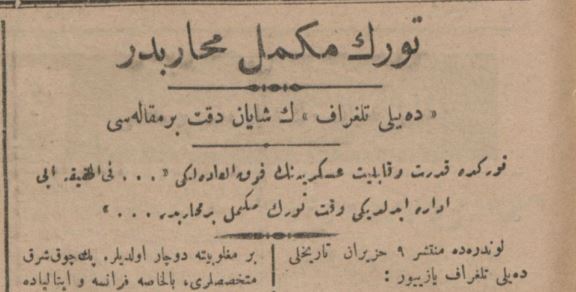 تورك مكمل محاربدر
« ده‌یلی تلغراف » ك شایان دقت بر مقاله‌سی
تورکده قدرت و قابلیت عسکریه‌نك فوق العاده‌لکی « . . . فی الحقیقه ایی
اداره ایدلدیکی وقت تورك مکمل بر محاربدر . . . »
لوندره‌ده منتشر ۹ حزیران تاریخلی
ده‌یلی تلغراف یازییور :
بر مغلوبیته دوچار اولدیلر . پك چوق شرق
متخصصلری ، بالخاصه فرانسه و ایتالیاده